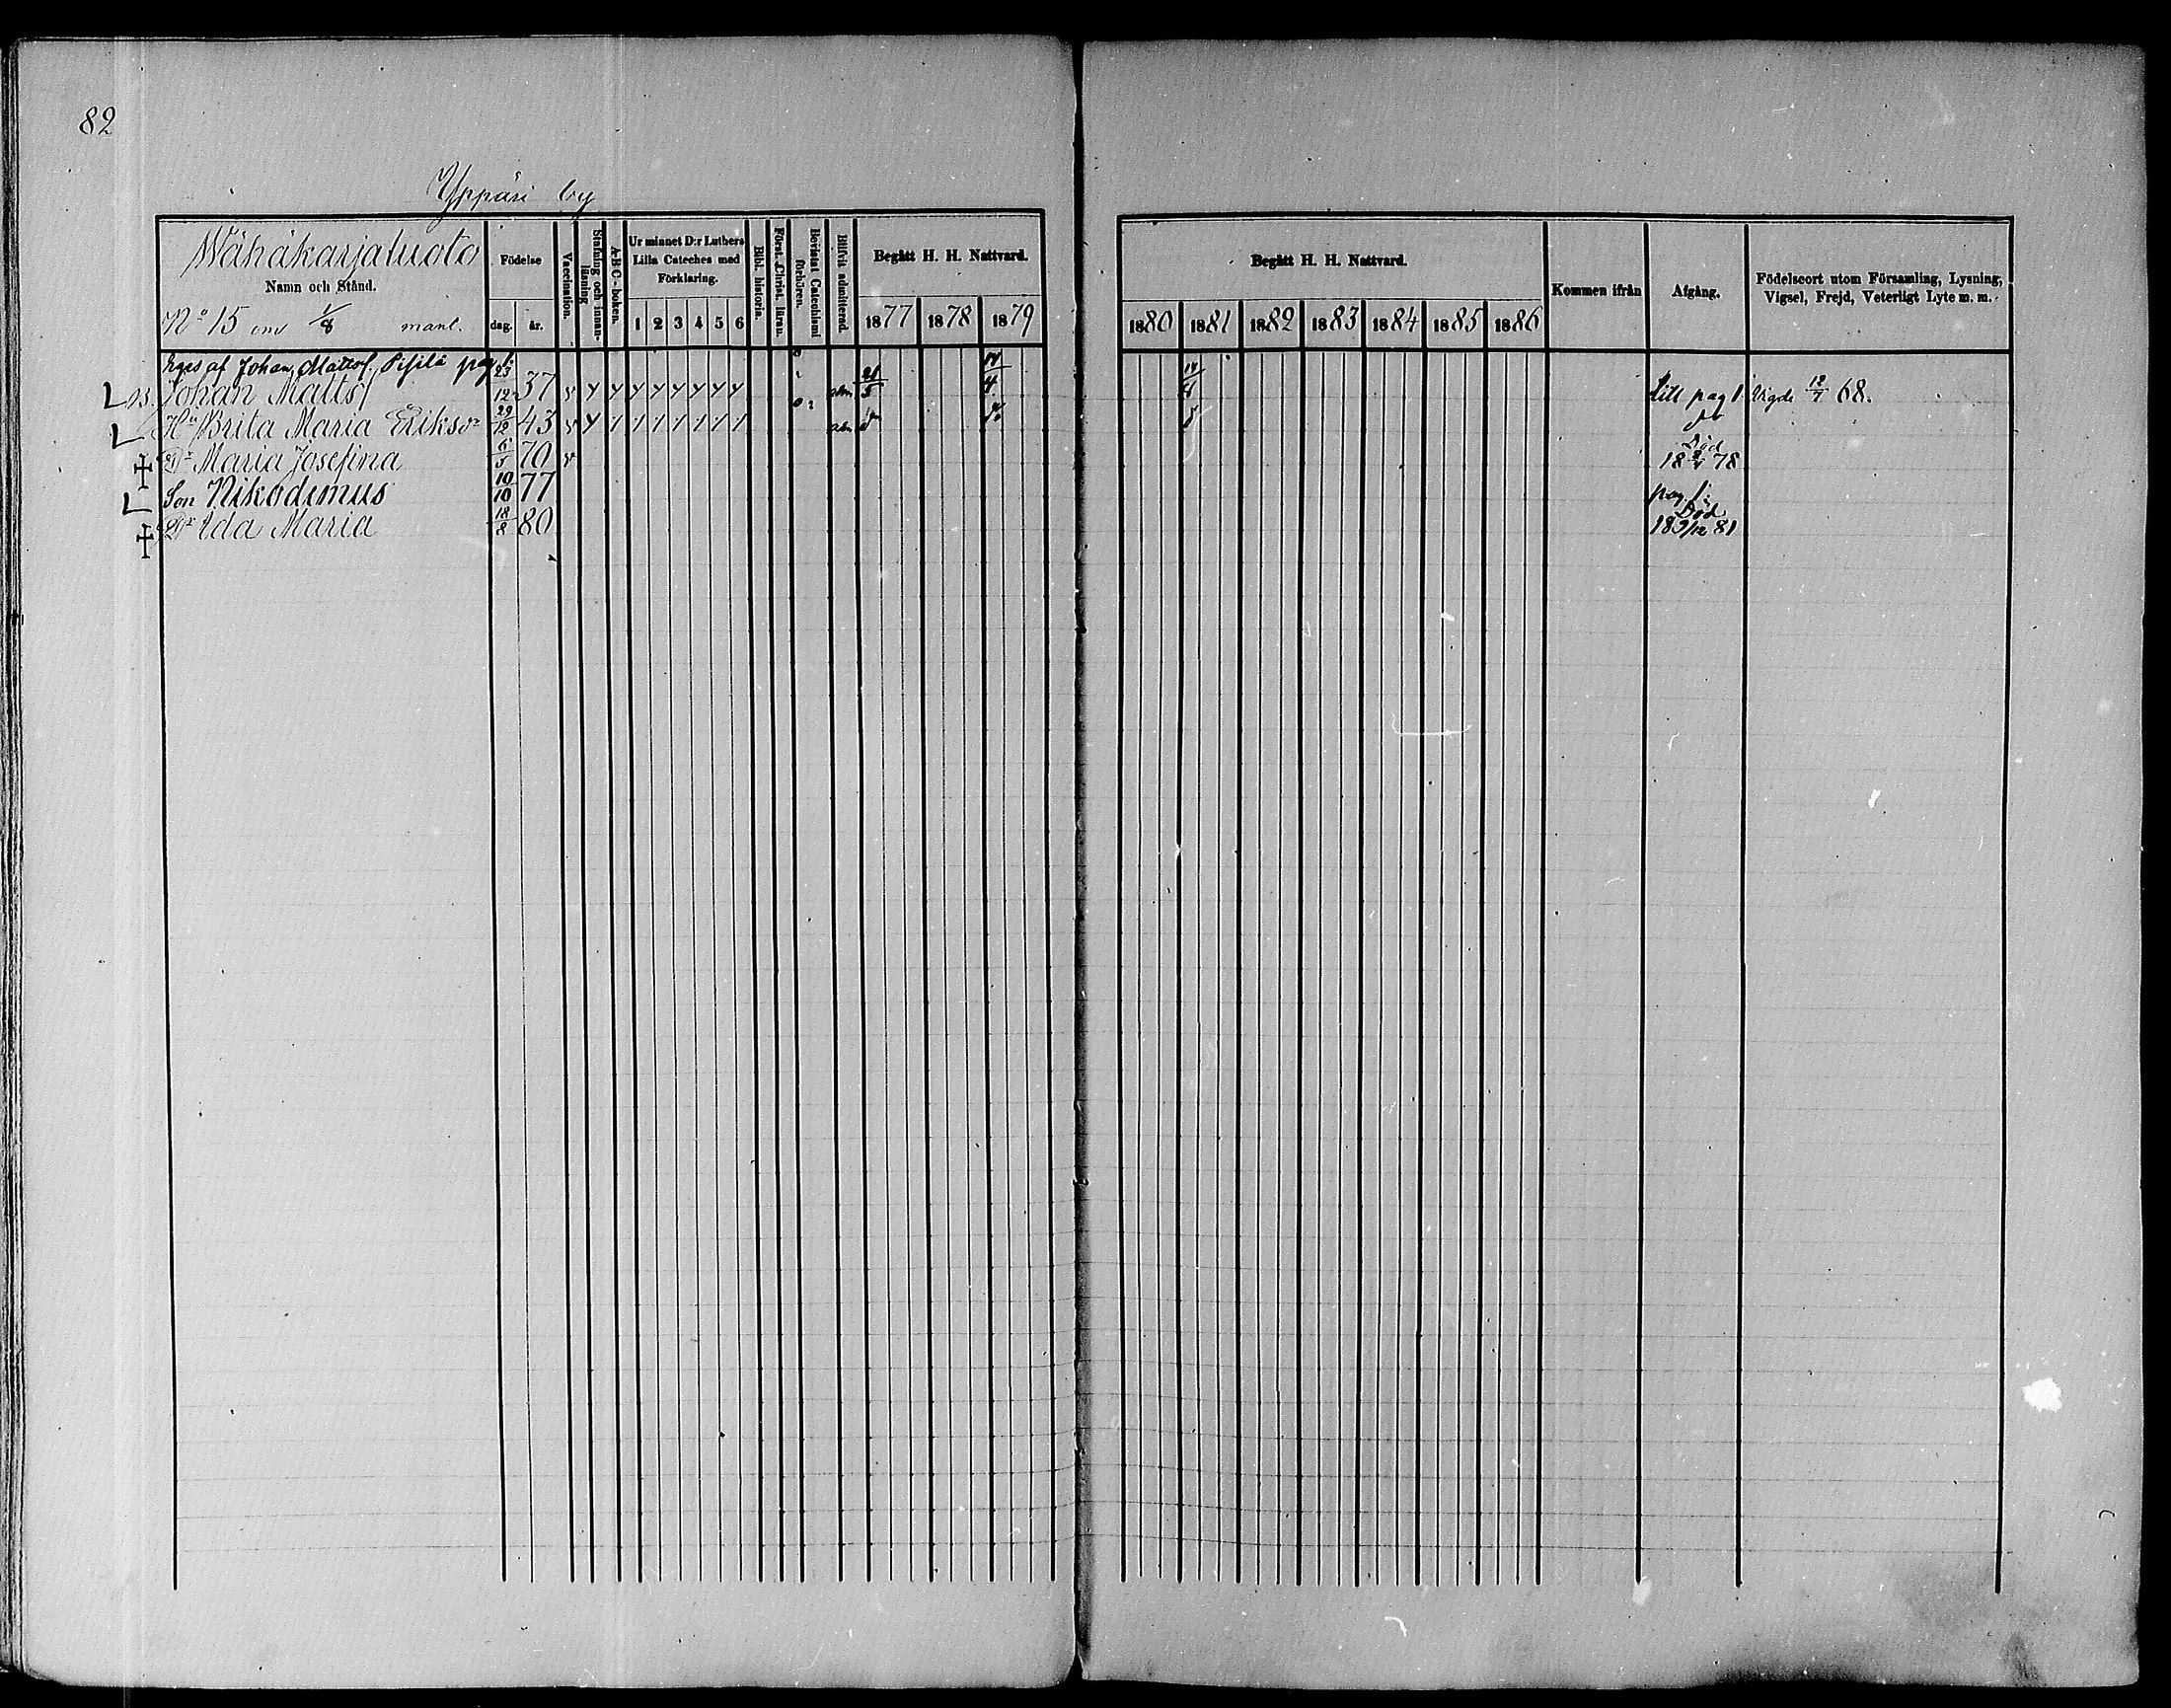 82
Yppäri by
Wähäkarjaluoto
Namn och Stånd.
No 15 om 1/8 mantl.
Födelse
dag. år.
Vaccination.
Stafning och innanläsning
A-B-C-boken.
Ur minnet D:r Luthers Lilla Cateches med Förklaring.
1 2 3 4 5 6
Bibl. historia.
Först. Christ. läran.
Bevistat Catechismi förhören.
Blifvit admitterad.
Begått H. H. Nattvard.
1877 1878 1879
Begått H. H. Nattvard.
1880 1881 1882 1883 1884 1885 1886
Kommen ifrån
Afgång.
Födelseort utom Församling, Lysning, Vigsel, Frejd, Veterligt Lyte m. m.
af Johan Mattss. pag 1.
Johan Mattss 23/12 37 adm 21/5 14/4 14/4 till pag 1 Vigde 12/7 68.
Hu Brita Maria Eriksdr 29/12 43 adm
Dr Maria Josefina 6/5 70 Död 18 78
Son Nikodemus 10/10 77 pag 1:
Dr Ida Maria 18/8 80 Död 18 /12 81